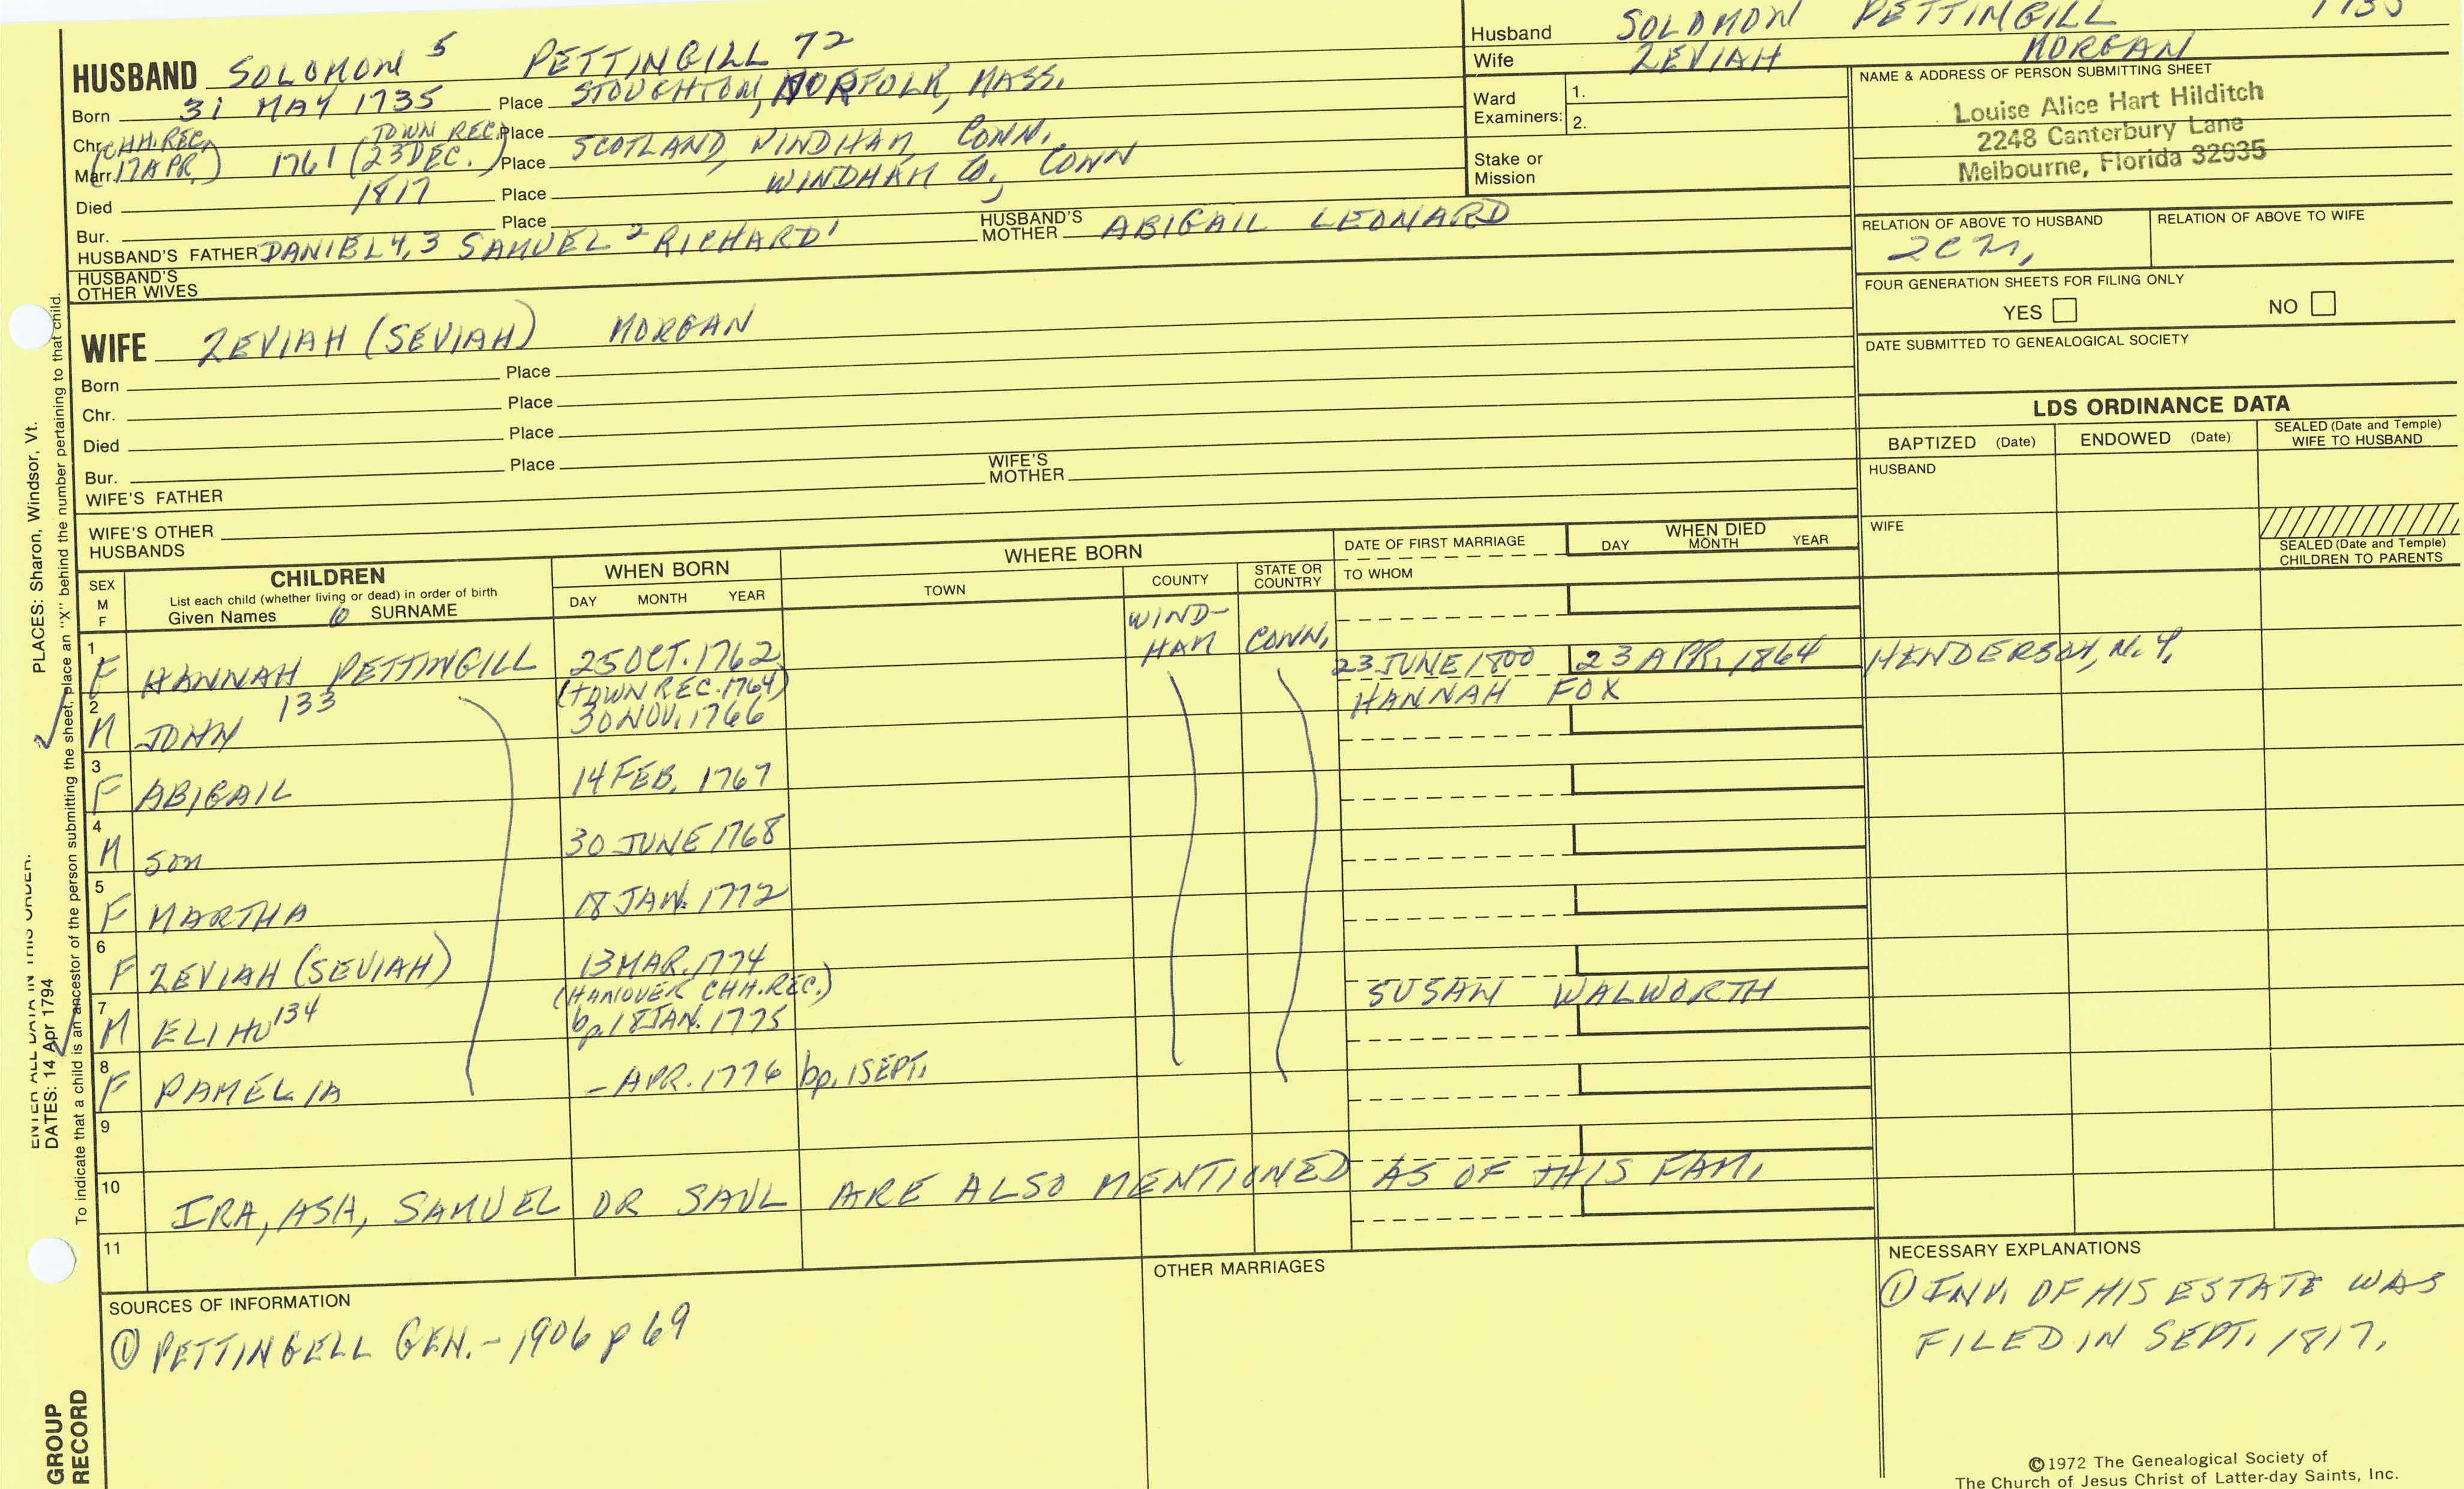 HUSBAND SOLOMON 5 PETTINGILL 72
Born 31 MAY 1735 Place STOUGHTON, NORFOLK, MASS.
Chr. Place
(CHH. REC. 17 APR.) (TOWN REC. 23 DEC.)
Marr. 1761 Place SCOTLAND, WINDHAM, CONN.
Died 1817 Place WINDHAM CO., CONN
Bur. Place
HUSBAND'S FATHER DANIEL 4,3 SAMUEL 2 RICHARD 1 HUSBAND'S MOTHER ABIGAIL LEONARD
HUSBAND'S OTHER WIVES
WIFE ZEVIAH (SEVIAH) MORGAN
Born Place
Chr. Place
Died Place
Bur. Place
WIFE'S FATHER WIFE'S MOTHER
WIFE'S OTHER HUSBANDS
Husband SOLOMON PETTINGILL 1735
Wife ZEVIAH MORGAN
Ward Examiners: 1.
2.
Stake or Mission
NAME & ADDRESS OF PERSON SUBMITTING SHEET
Louise Alice Hart Hilditch
2248 Canterbury Lane
Melbourne, Florida 32935
RELATION OF ABOVE TO HUSBAND RELATION OF ABOVE TO WIFE
FOUR GENERATION SHEETS FOR FILING ONLY
YES NO
DATE SUBMITTED TO GENEALOGICAL SOCIETY
LDS ORDINANCE DATA
BAPTIZED (Date) ENDOWED (Date) SEALED (Date and Temple) WIFE TO HUSBAND
HUSBAND
WIFE
SEALED (Date and Temple) CHILDREN TO PARENTS
SEX M F
CHILDREN
List each child (whether living or dead) in order of birth
Given Names 6 SURNAME
WHEN BORN
DAY MONTH YEAR
WHERE BORN
TOWN COUNTY STATE OR COUNTRY
DATE OF FIRST MARRIAGE
TO WHOM
WHEN DIED
DAY MONTH YEAR
1 F HANNAH PETTINGILL 25 OCT. 1762 WINDHAM CONN.
2 M JOHN 133 (TOWN REC. 1764) 30 NOV. 1766 23 JUNE 1800 HANNAH FOX 23 APR. 1864 HENDERSON, N.Y.
3 F ABIGAIL 14 FEB. 1767
4 M SON 30 JUNE 1768
5 F MARTHA 18 JAN. 1772
6 F ZEVIAH (SEVIAH) 13 MAR. 1774
7 M ELIHU 134 (HANOVER CHH. REC.) bp. 18 JAN. 1775 SUSAN WALWORTH
8 F PAMELIA - APR. 1776 bp. 1 SEPT.
9
10 IRA, ASA, SAMUEL OR SAUL ARE ALSO MENTIONED AS OF THIS FAM.
11
SOURCES OF INFORMATION
① PETTINGELL GEN. - 1906 p 69
OTHER MARRIAGES
NECESSARY EXPLANATIONS
① INV. OF HIS ESTATE WAS
FILED IN SEPT. 1817.
©1972 The Genealogical Society of
The Church of Jesus Christ of Latter-day Saints, Inc.
ENTER ALL DATA IN THIS ORDER.
PLACES: Sharon, Windsor, Vt.
DATES: 14 Apr 1794
To indicate that a child is an ancestor of the person submitting the sheet, place an "X" behind the number pertaining to that child.
GROUP
RECORD